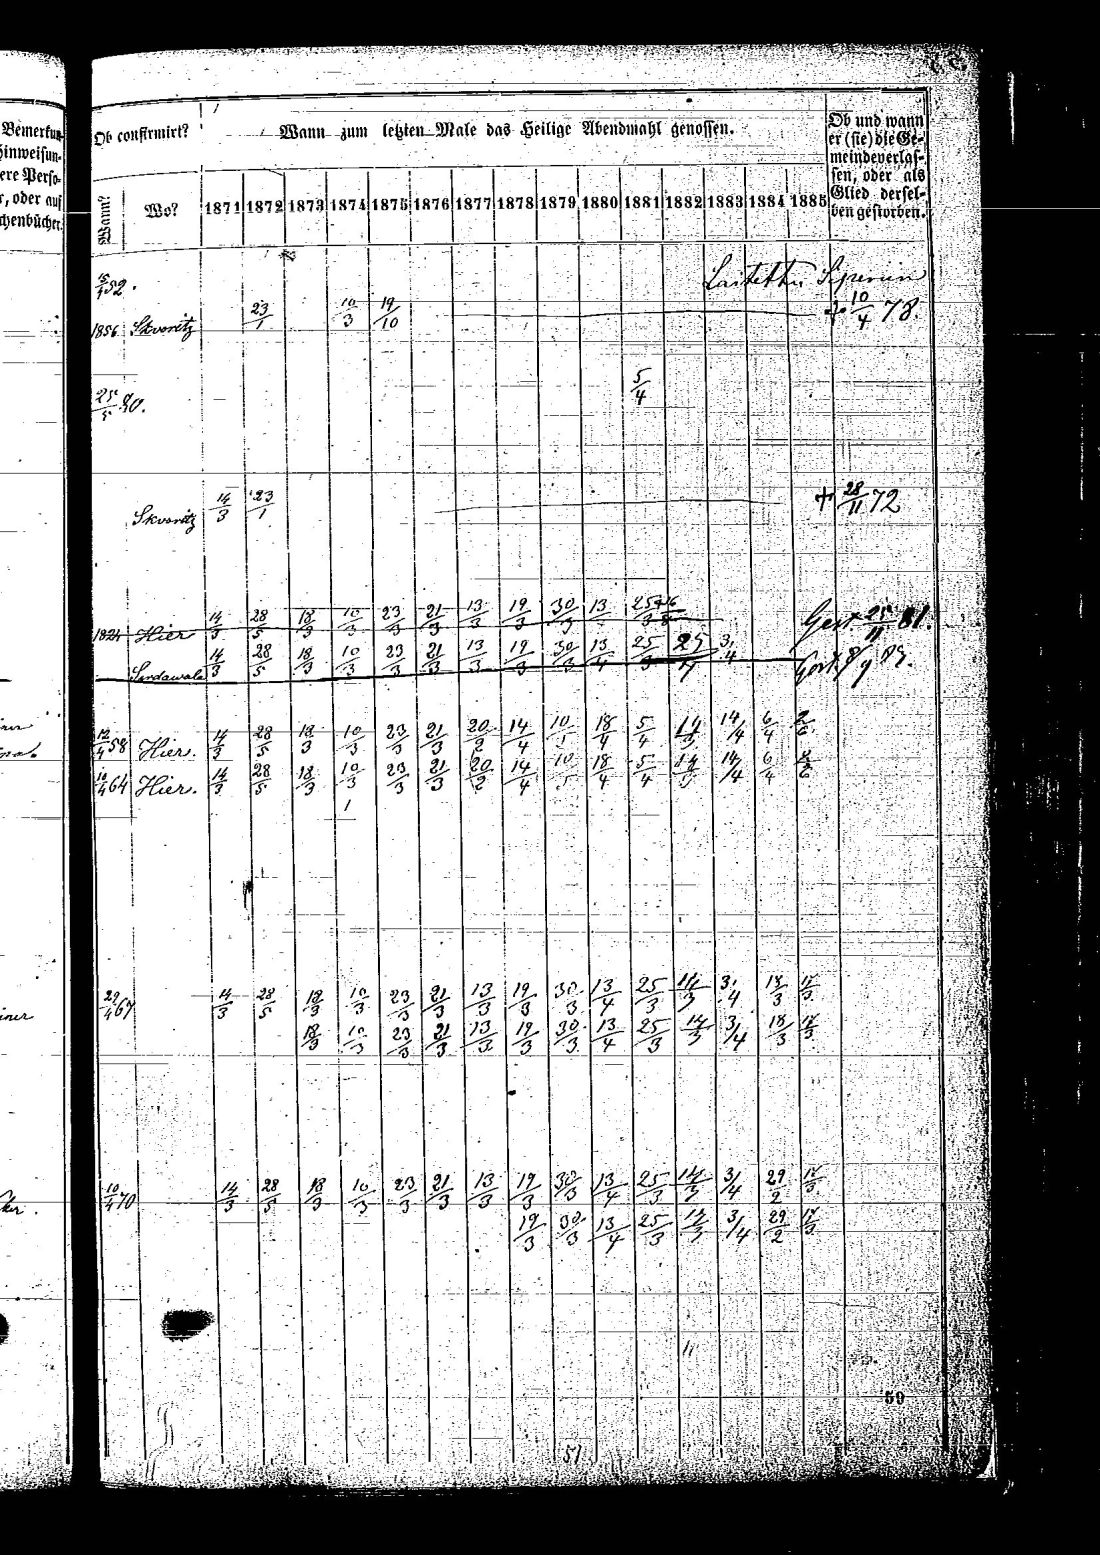 Bemerkun-
Hinweisun-
ere Perso-
r, oder auf
chenbücher.
Ob confirmirt?
Wann zum letzten Male das Heilige Abendmahl genossen.
Ob und wann
er (sie) die Ge-
meinde verlas-
sen, oder als
Glied dersel-
ben gestorben.
Wann? Wo? 1871 1872 1873 1874 1875 1876 1877 1878 1879 1880 1881 1882 1883 1884 1885
15/4 52.
23/1 10/3 19/10 † 10/4 78.
1856 Skvoritz
5/4
25/5 80.
Skvoritz 14/3 23/1 † 28/11 72
1824 Hier 14/3 28/5 18/3 10/3 23/3 21/3 13/3 19/3 30/3 13 25/3 Gest. 25/11 81
14/3 28/5 18/3 10/3 23/3 21/3 13/3 19/3 30/3 13/4 25/3 3/4
12/4 58 Hier. 14/3 28/5 18/3 10/3 23/3 21/3 20/2 14/4 10/5 18/4 5/4 14/3 14/4 6/4
10/4 64 Hier. 14/3 28/5 18/3 10/3 23/3 21/3 20/2 14/4 10/5 18/4 5/4 14/4 6/4
29/4 67 14/3 28/5 18/3 10/3 23/3 21/3 13/3 19/3 30/3 13/4 25/3 14/3 3/4 18/3 17/3
iner
18/3 10/3 23/3 21/3 13/3 19/3 30/3 13/4 25/3 14/3 3/4 18/3 17/3
10/4 70 14/3 28/5 18/3 10/3 23/3 21/3 13/3 19/3 30/3 13/4 25/3 14/3 3/4 29/2 17/3
19/3 30/3 13/4 25/3 14/3 3/4 29/2 17/3
59
51